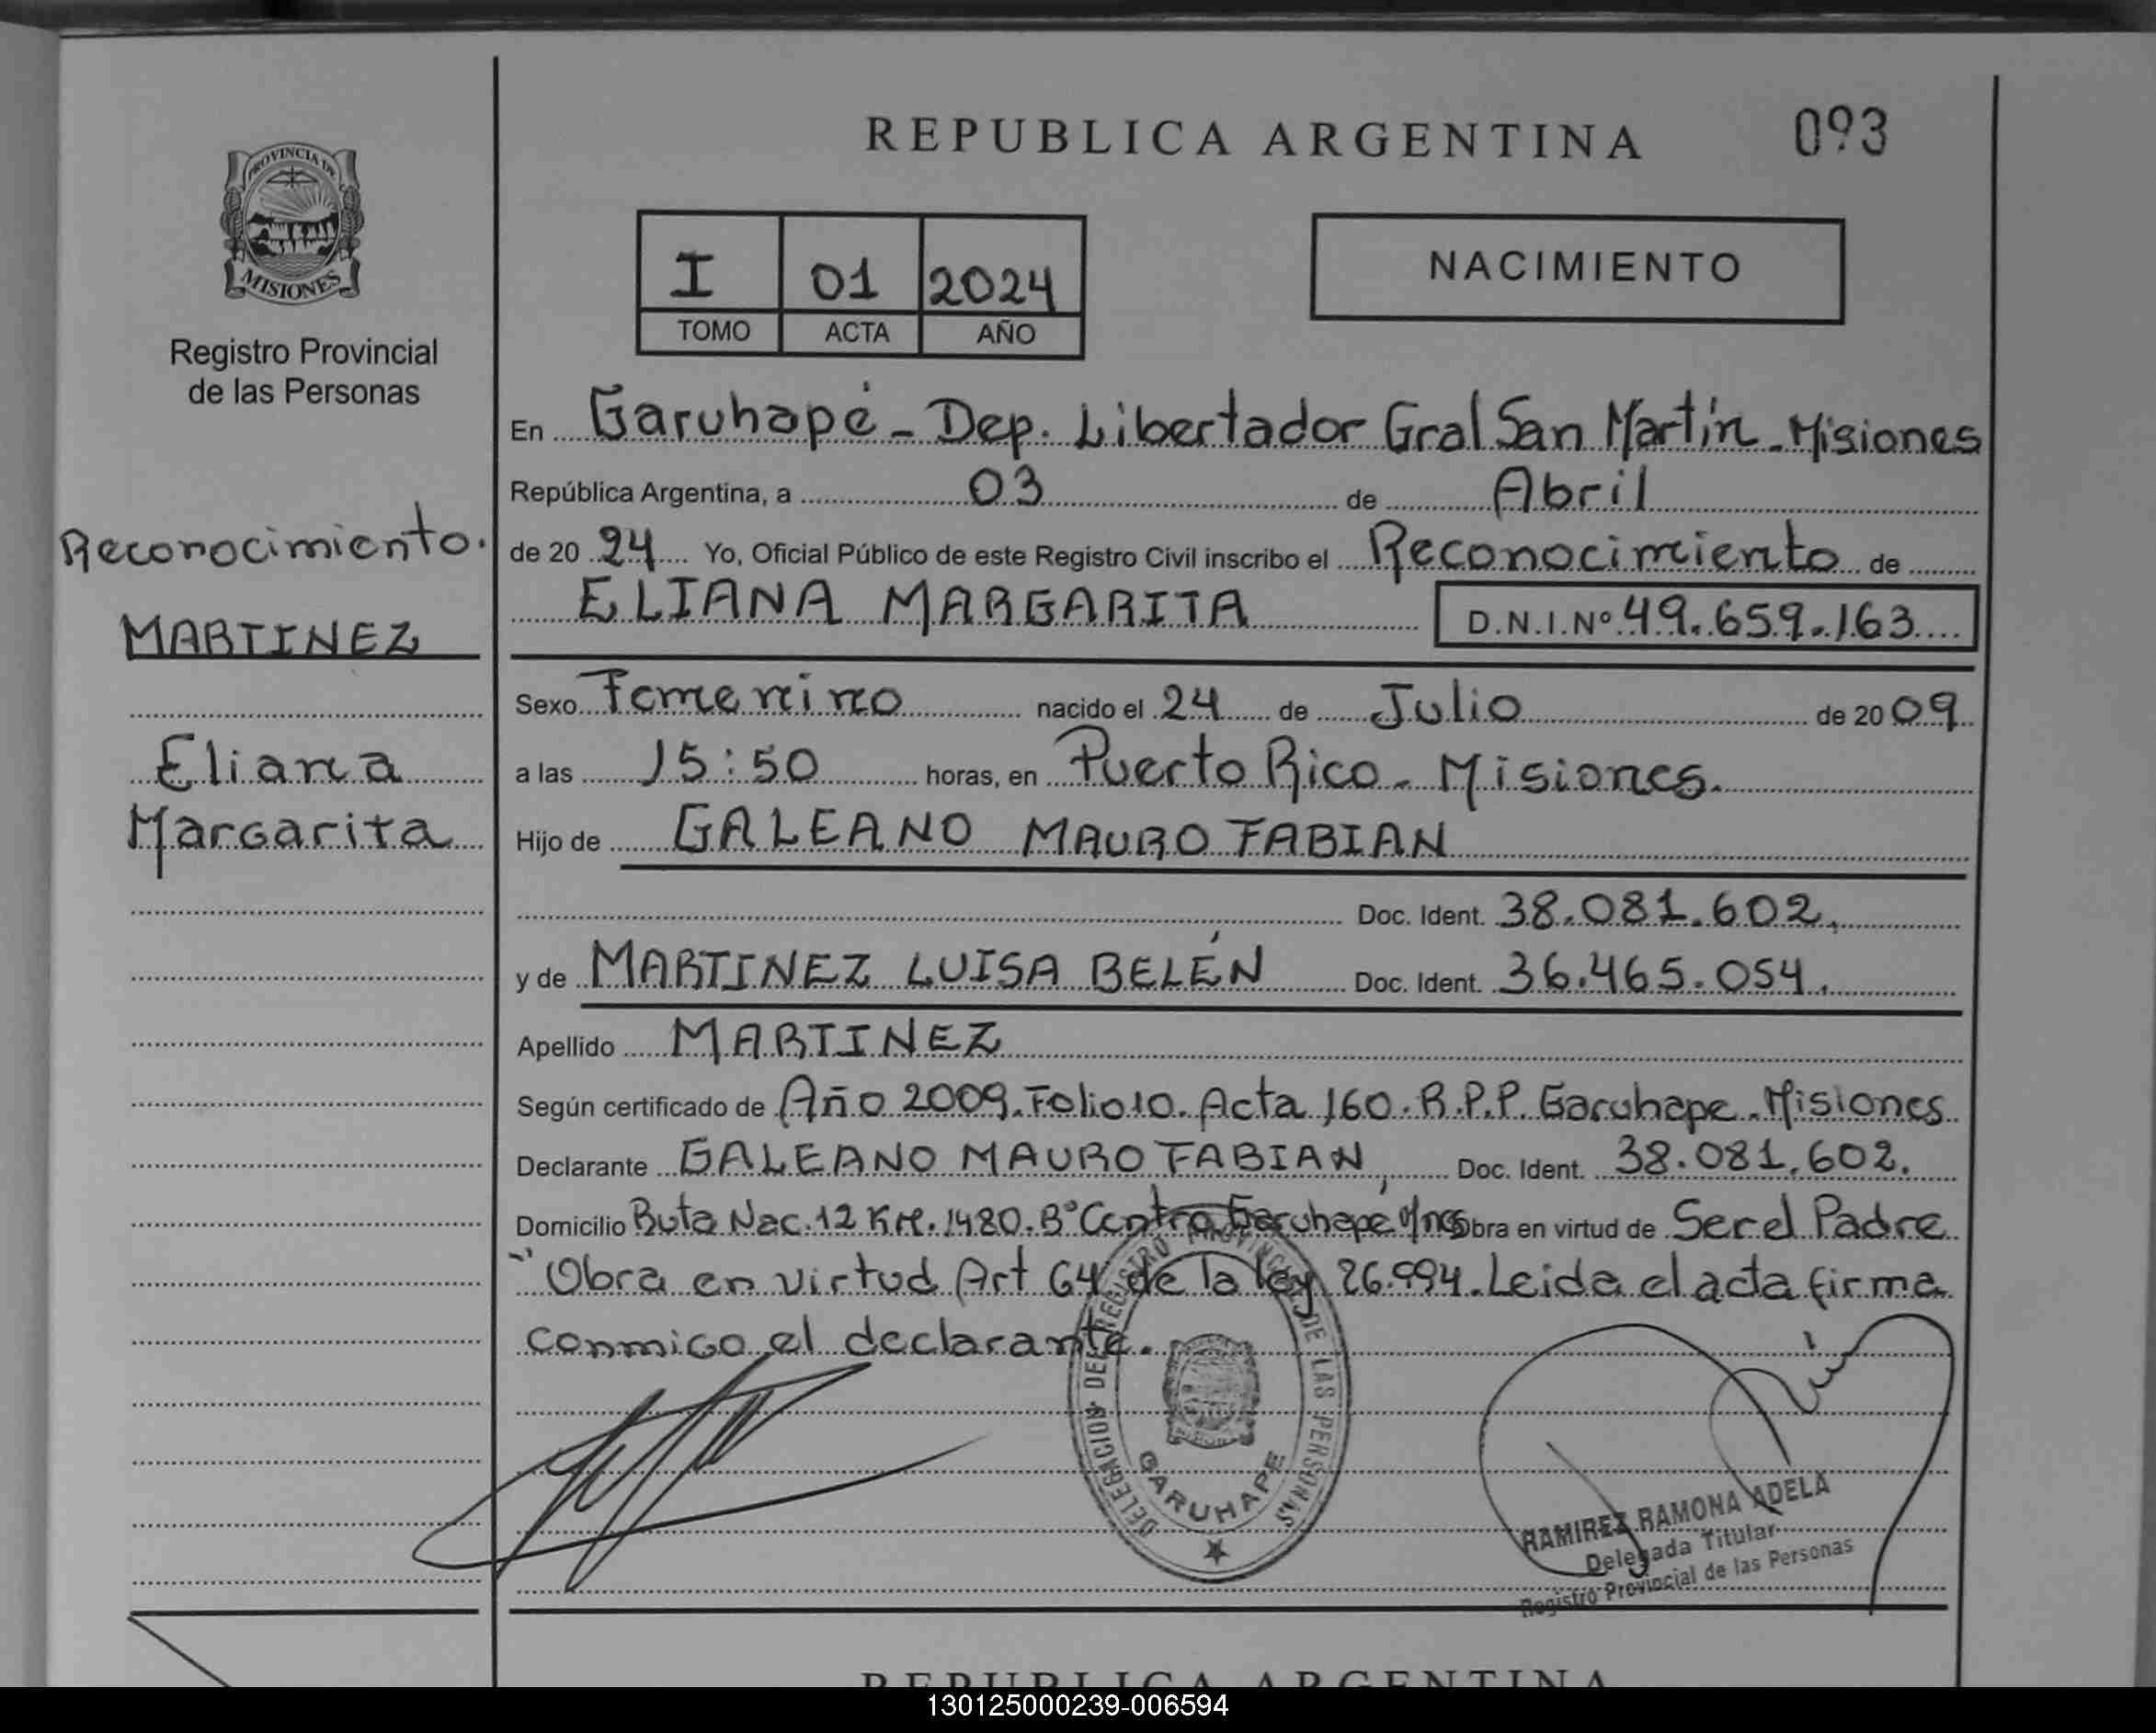 REPUBLICA ARGENTINA
093
PROVINCIA DE
MISIONES
Registro Provincial
de las Personas
I 01 2024
TOMO ACTA AÑO
NACIMIENTO
En Garuhapé - Dep. Libertador Gral San Martín - Misiones
República Argentina, a 03 de Abril
de 20 24 Yo, Oficial Público de este Registro Civil inscribo el Reconocimiento de
ELIANA MARGARITA D.N.I.Nº 49.659.163
Reconocimiento.
MARTINEZ
Eliana
Margarita
Sexo Femenino nacido el 24 de Julio de 20 09
a las 15:50 horas, en Puerto Rico - Misiones.
Hijo de GALEANO MAURO FABIAN
Doc. Ident. 38.081.602.
y de MARTINEZ LUISA BELÉN Doc. Ident. 36.465.054.
Apellido MARTINEZ
Según certificado de Año 2009. Folio 10. Acta 160. R.P.P. Garuhape - Misiones
Declarante GALEANO MAURO FABIAN Doc. Ident. 38.081.602.
Domicilio Ruta Nac. 12 KM. 1480. Bº Centro Garuhapé Mnes Obra en virtud de Ser el Padre
"Obra en virtud Art 64 de la ley 26.994. Leida el acta firma
conmigo el declarante.
DELEGACION DEL REGISTRO PROVINCIAL DE LAS PERSONAS
GARUHAPE
RAMIREZ RAMONA ADELA
Delegada Titular
Registro Provincial de las Personas
REPUBLICA ARGENTINA
130125000239-006594